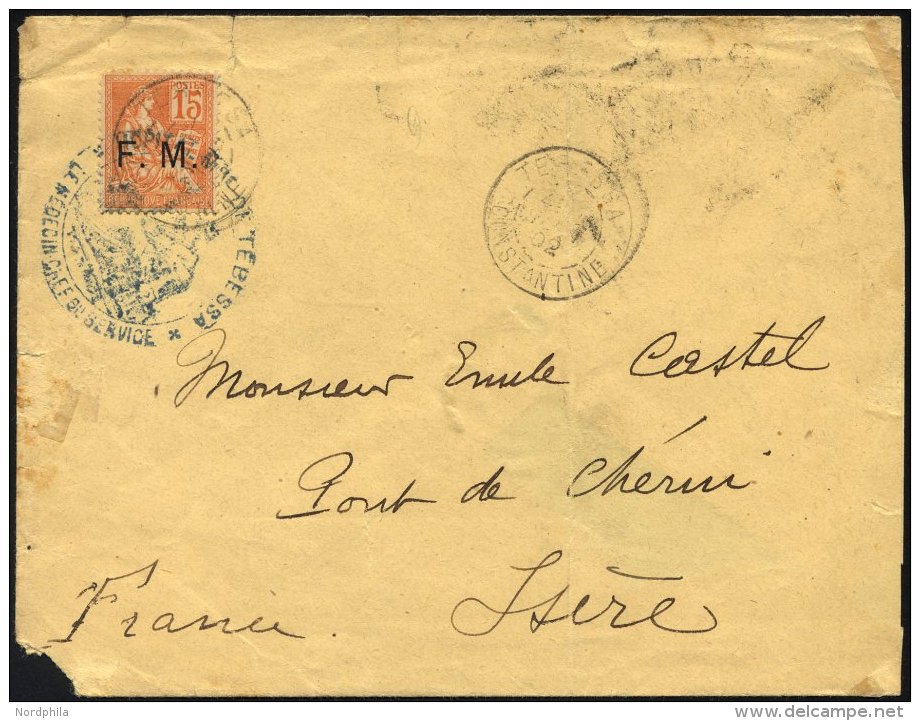 POSTES
15
F. M.
REPUBLIQUE FRANCAISE
TEBESSA
LE MEDECIN CHEF DU SERVICE
TEBESSA
02
CONSTANTINE
Monsieur Emile Castel
Pont de Chérui
Isère
France.
Nordphila
www.delcampe.net